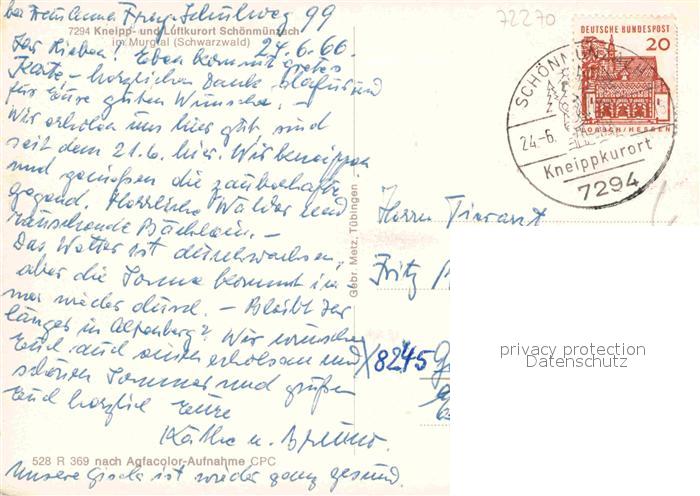 bei Frau Anna Frey, Schulweg 99
72270
7294 Kneipp- und Luftkurort Schönmünzach
im Murgtal (Schwarzwald)
24.6.66.
Ihr Lieben! Eben kommt
Karte, - herzlichen Dank dafür und
für Eure guten Wünsche. -
Wir erholen uns hier gut, sind
seit dem 21.6. hier. Wir kneippen
und genießen die zauberhafte
Gegend. Herrliche Wälder und
rauschende Bächlein. -
Das Wetter ist durchwachsen,
aber die Sonne kommt im-
mer wieder durch. - Bleibt Ihr
länger in Altenberg? Wir wünschen
Euch auch einen erholsamen und
schönen Sommer und grüßen
Euch herzlich Eure
Käthe u. Bruno.
528 R 369 nach Agfacolor-Aufnahme CPC
Unsere Gisela ist wieder ganz gesund.
Gebr. Metz, Tübingen
DEUTSCHE BUNDESPOST
20
LORSCH/HESSEN
SCHÖNMÜN
24.-6.
Kneippkurort
7294
Herrn Tierarzt
Fritz
8245
privacy protection
Datenschutz